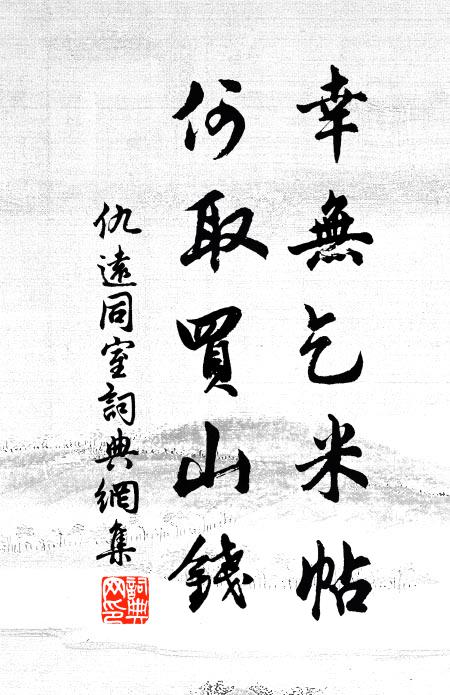 幸無乞米帖
何取買山錢
仇遠同室詞典網集
詞典網印